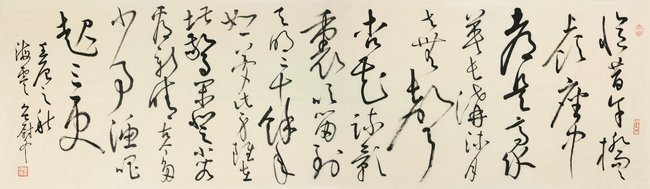 憶昔午橋橋
上飲座中
都是豪
英長溝流月
去無聲
杏花疏影
裏吹笛到
天明二十餘年
如一夢此身雖在
堪驚閑登小閣
看新晴古今多
少事漁唱
起三更
壬辰之秋
海雲